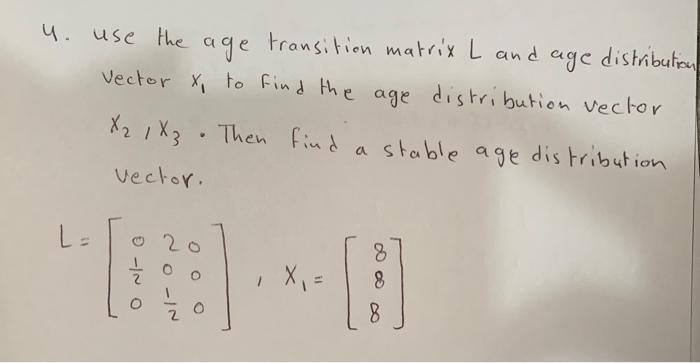 4. use the age transition matrix L and age distribution
vector X₁ to find the age distribution vector
X₂, X₃. Then find a stable age distribution
vector.
L = [ 0 2 0
1/2 0 0
0 1/2 0 ] , X₁ = [ 8
8
8 ]